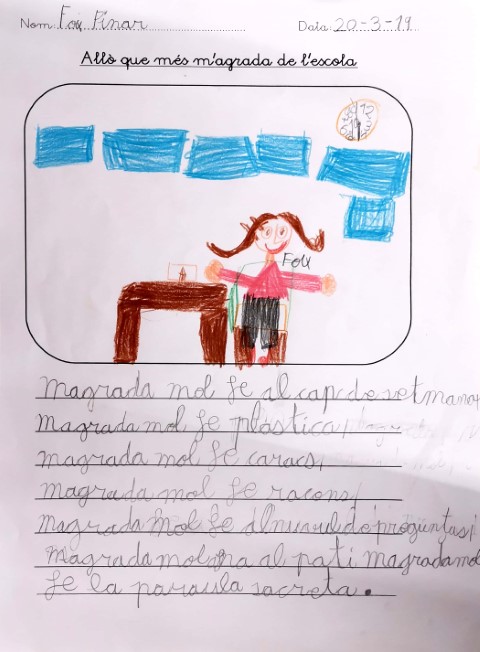 Nom: Fou Pinar Data: 20-3-19
Allò que més m'agrada de l'escola
12
Fou
magrada mol fe al cap de set mana,
magrada mol fe plàstica,
magrada mol fe caracs,
magrada mol fe racons,
magrada mol fe preguntas i
magrada mol al pati magrada mol
fe la paraula sacreta.